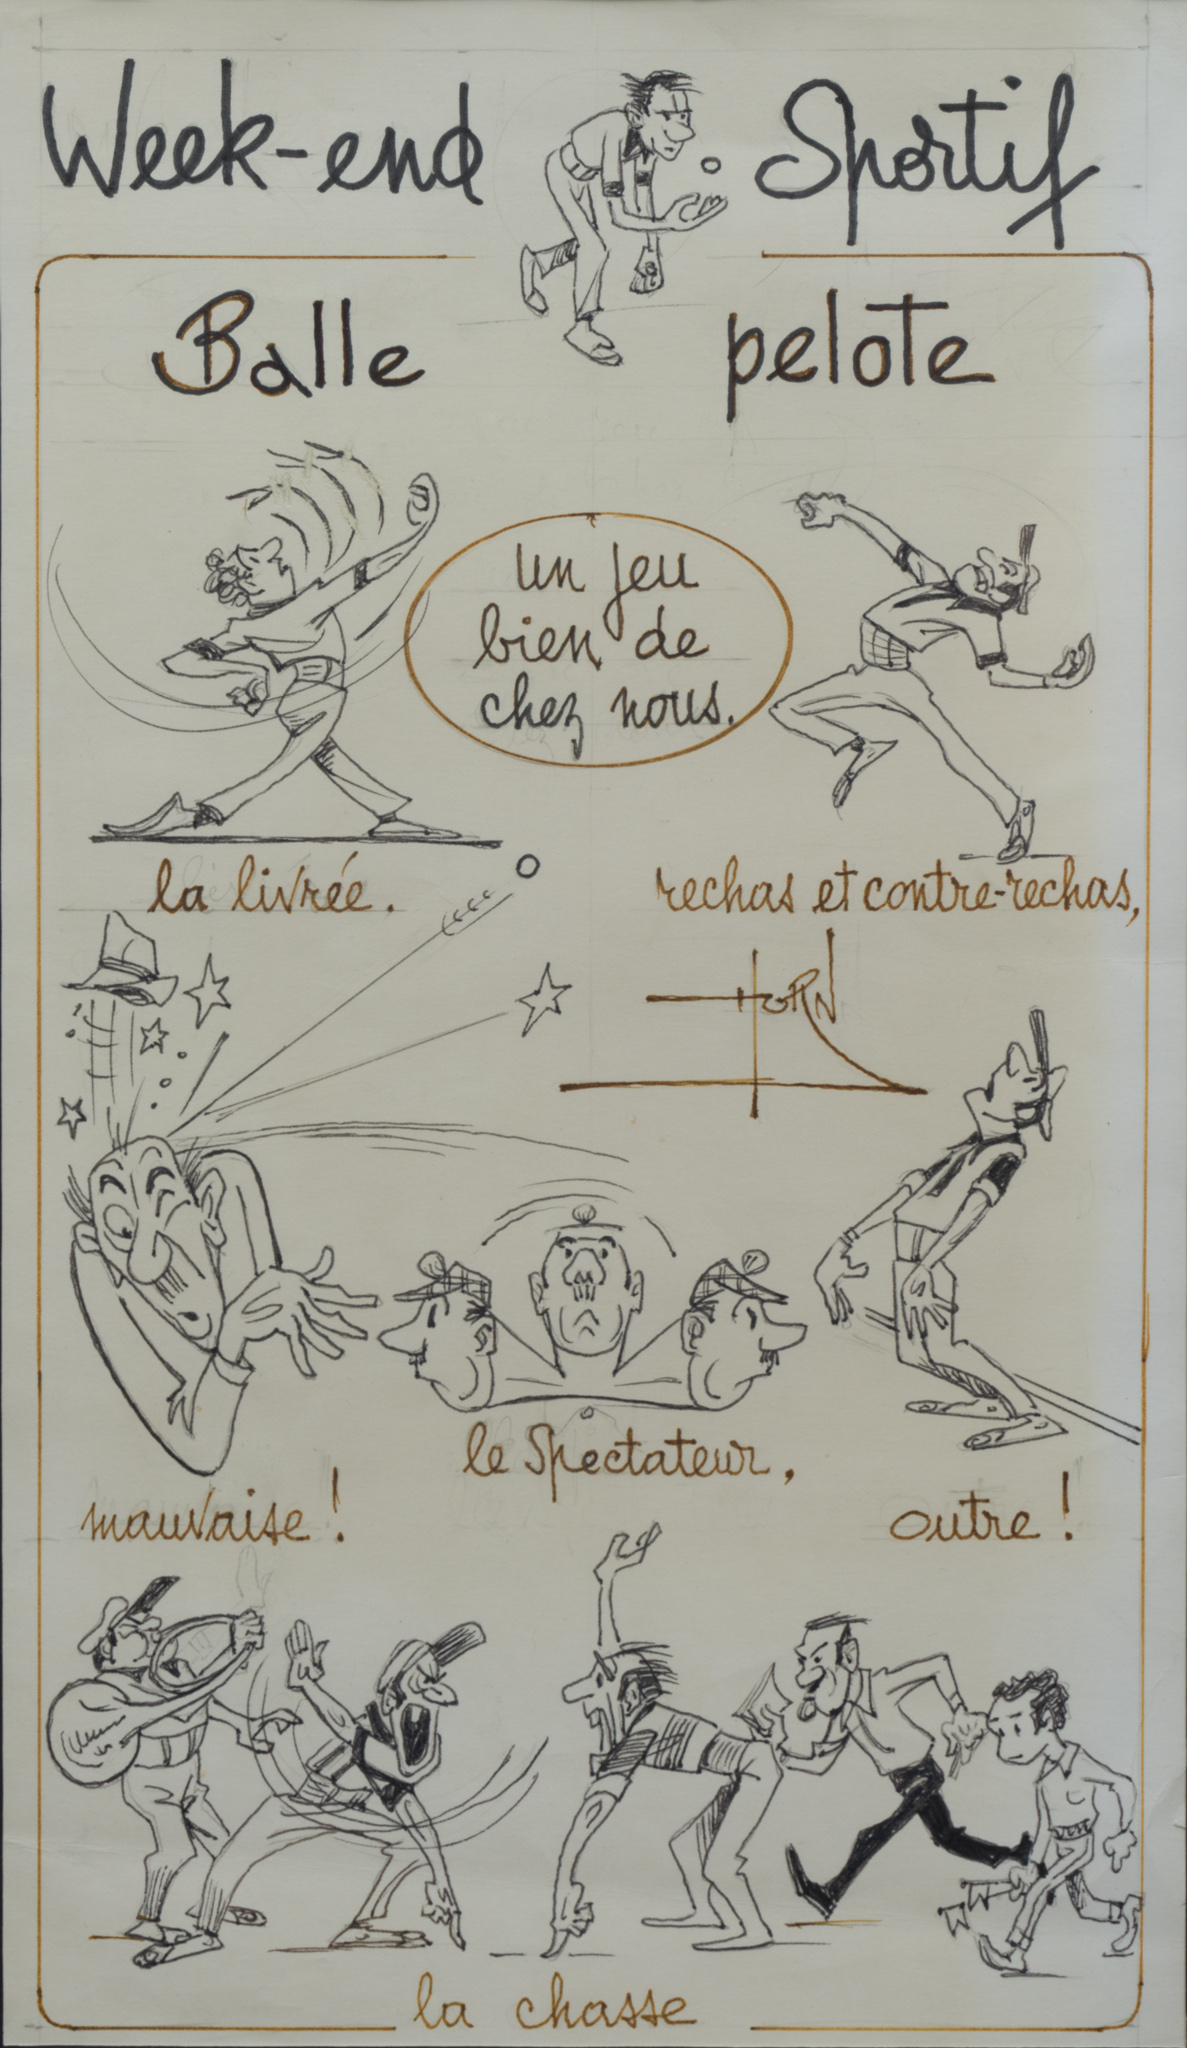 Week-end Sportif
Balle pelote
un jeu
bien de
chez nous.
la livrée.
rechas et contre-rechas,
HORN
le Spectateur,
mauvaise !
outre !
la chasse